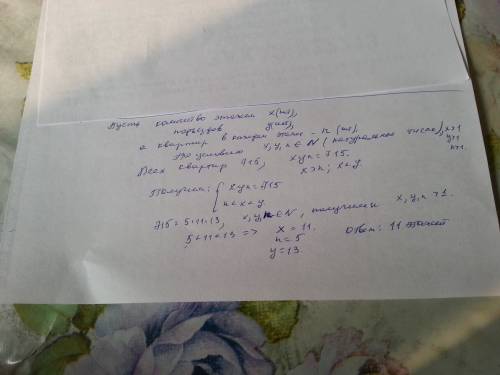 Пусть количество этажей x(шт),
подъездов y(шт),
а квартир в каждом этаже - n (шт),
По условию x, y, n ∈ N (натуральное число), x>1
y>1
n>1.
Всех квартир 715, xyn = 715.
x>n; x<y.
Получим: { xyn = 715
n<x<y
715 = 5·11·13, x,y,n ∈ N, получили x,y,n >1.
5<11<13 => x = 11.
n = 5
y = 13.
Ответ: 11 этажей